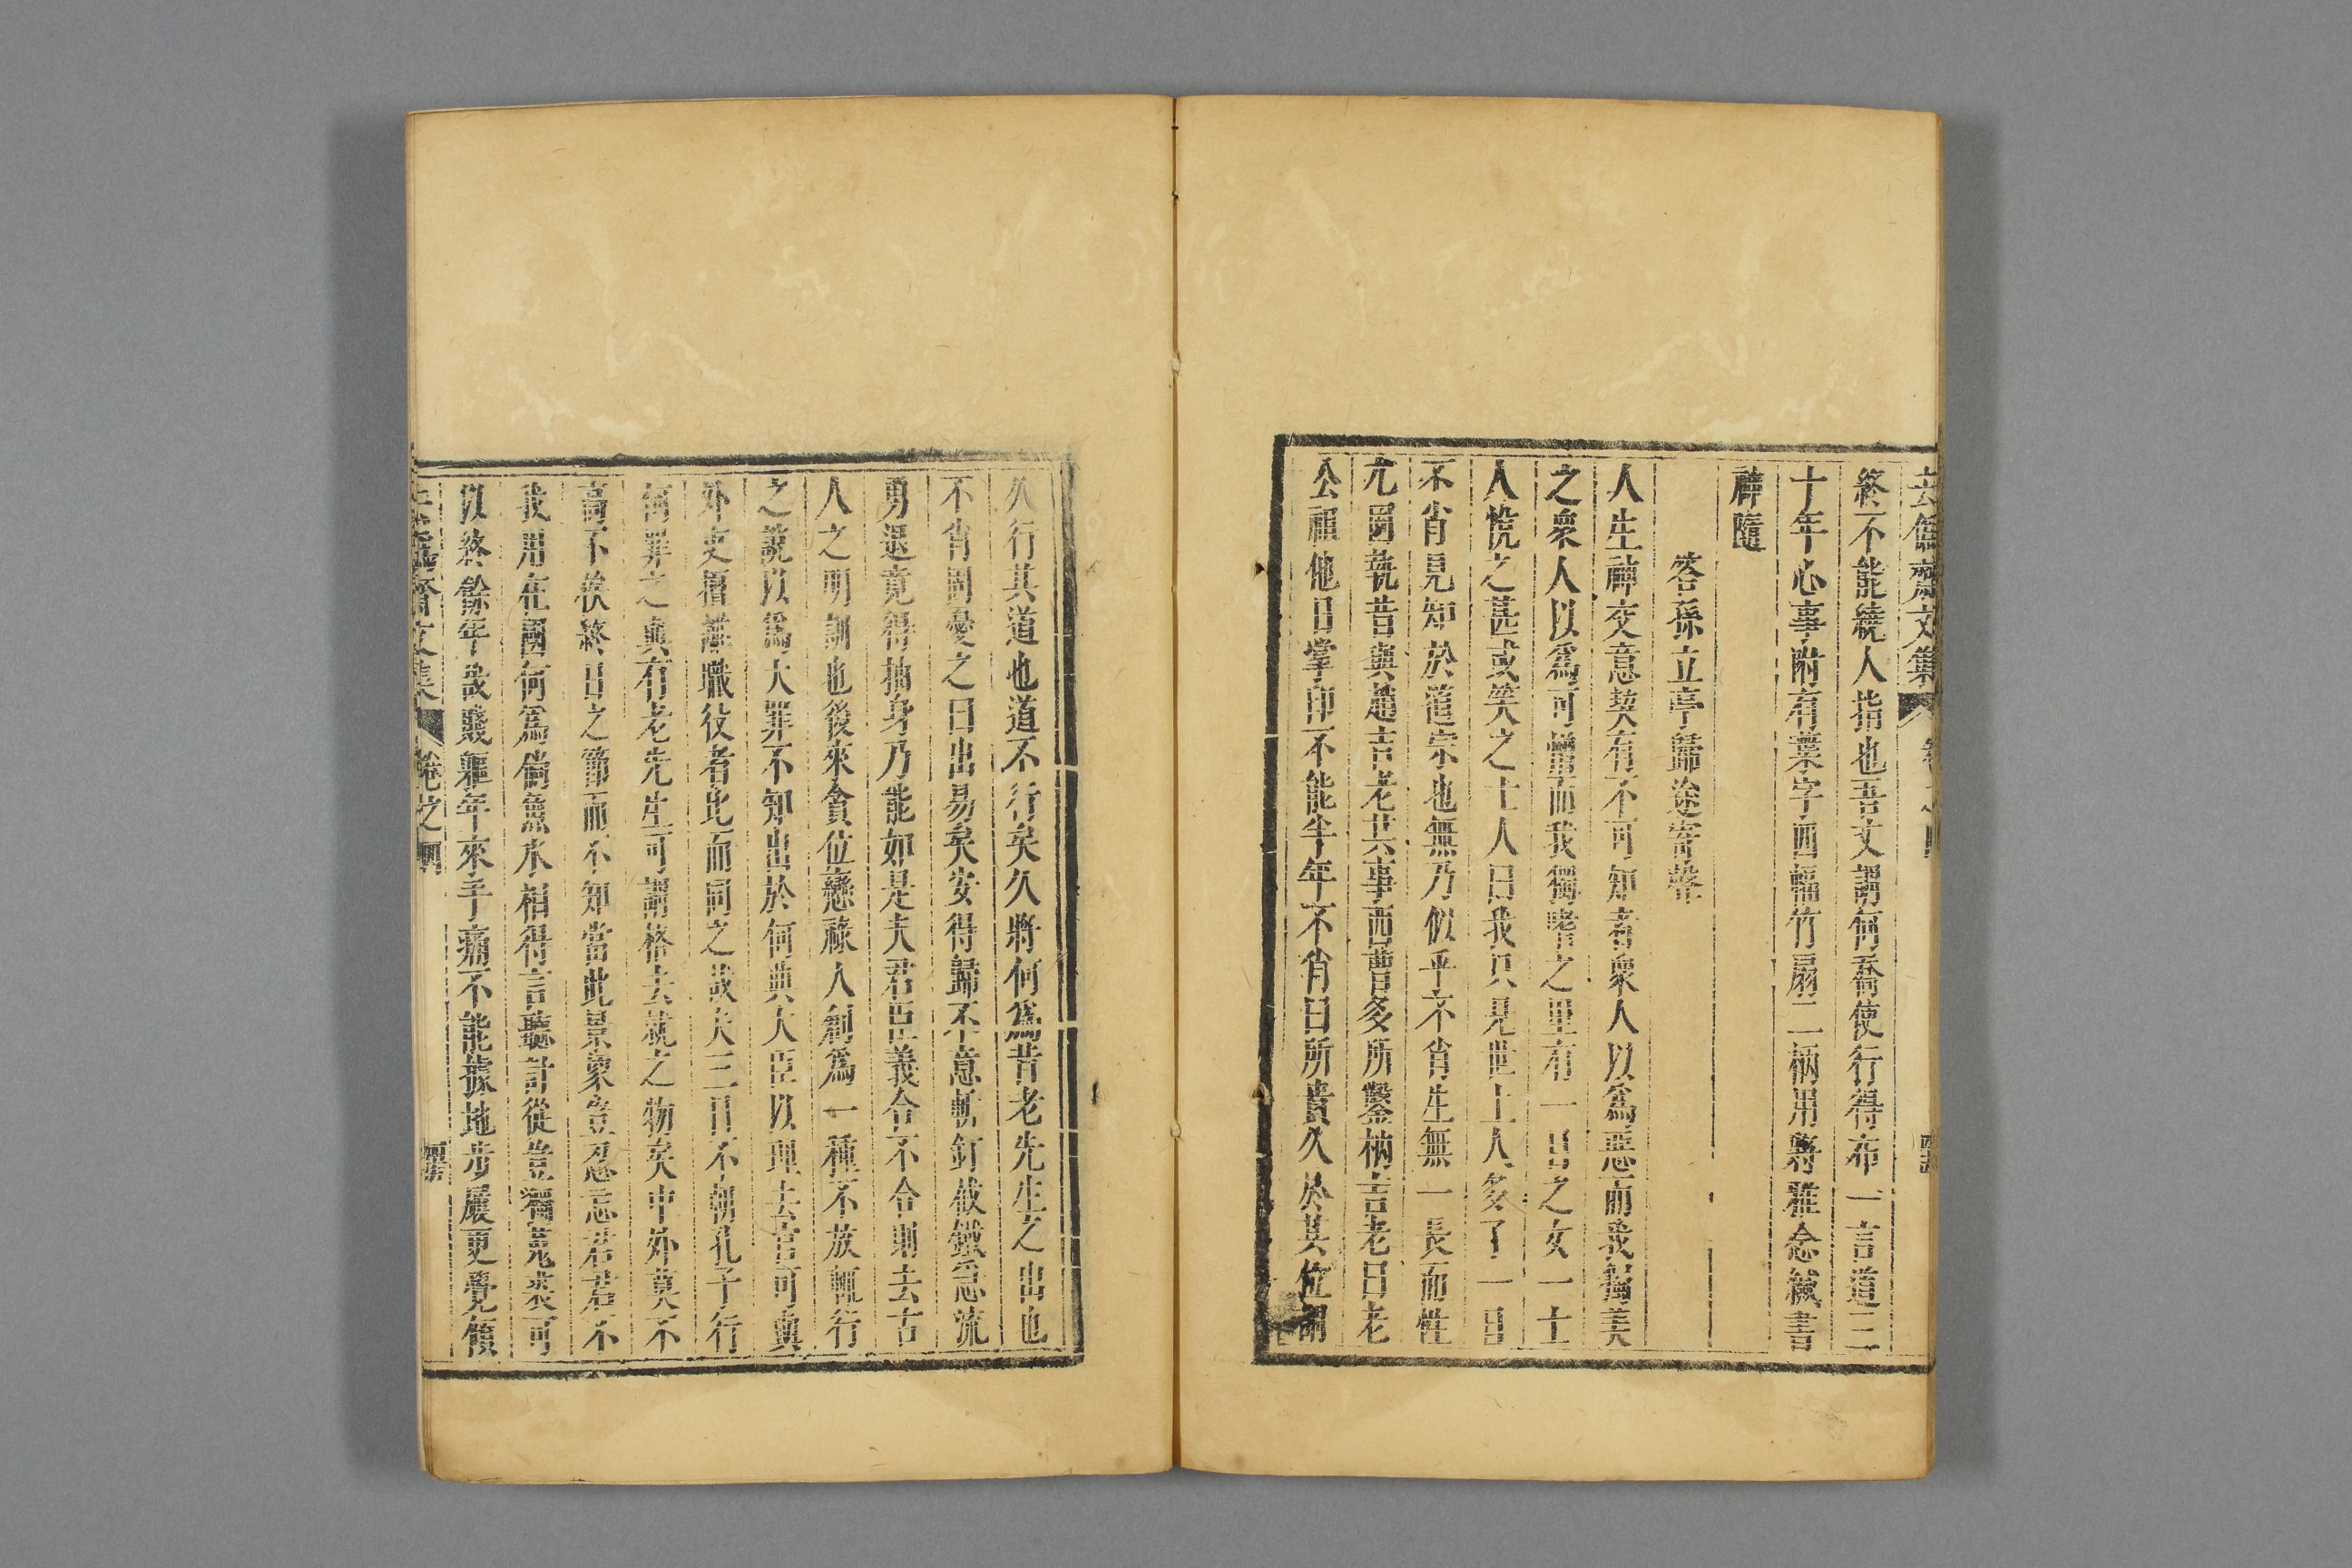 去僞齋文集 卷之四
終不能繞人指也吾丈謂何喬使行得布一言道三
十年心事附有葉字四幅竹扇二柄用將雅念緘書
神隨
答孫立亭歸途寄聲
人生神交意契有不可知者衆人以爲惡而我獨美
之衆人以爲可憎而我獨嗜之里有一出之女一士
人慌之甚或笑之士人曰我只見世上人多了一目
不肖見知於道宗也無乃似乎不肖生無一長而性
尤固執昔與趙吉老共事西曹多所鑿枘吉老曰老
公祖他日掌印不能半年不肖曰所貴久於其位謂
久行其道也道不行矣久將何爲昔老先生之出也
不肖固憂之曰出易矣安得歸不意斬釘截鐵急流
勇退竟得抽身乃能如是夫君臣義合不合則去古
人之明訓也後來貪位戀祿人創爲一種不放輒行
之說以爲大罪不知出於何典大臣以理去官可與
外吏擅離職役者比而同之哉夫三日不朝孔子行
何罪之與有老先生可謂格去就之物矣中外莫不
高不俟終日之節而不知當此景象豈忍忘君君不
我用在國何爲倘魚水相得言聽計從豈獨菟裘可
以終餘年哉賤軀年來手痛不能據地步履更覺傾
去僞齋文集 卷之四